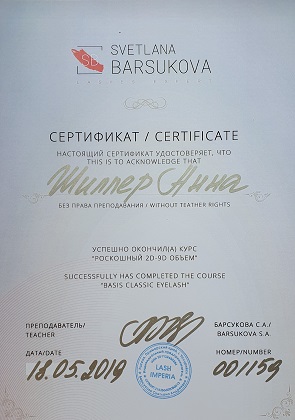 SVETLANA
BARSUKOVA
СЕРТИФИКАТ / CERTIFICATE
НАСТОЯЩИЙ СЕРТИФИКАТ УДОСТОВЕРЯЕТ, ЧТО
THIS IS TO ACKNOWLEDGE THAT
Шиллер Нина
БЕЗ ПРАВА ПРЕПОДАВАНИЯ / WITHOUT TEATHER RIGHTS
УСПЕШНО ОКОНЧИЛ(А) КУРС
"РОСКОШНЫЙ 2D-9D ОБЪЕМ"
SUCCESSFULLY HAS COMPLETED THE COURSE
"BASIS CLASSIC EYELASH"
ПРЕПОДАВАТЕЛЬ/
TEACHER
БАРСУКОВА С.А./
BARSUKOVA S.A.
ДАТА/DATE
18.05.2019
LASH
IMPERIA
НОМЕР/NUMBER
001159